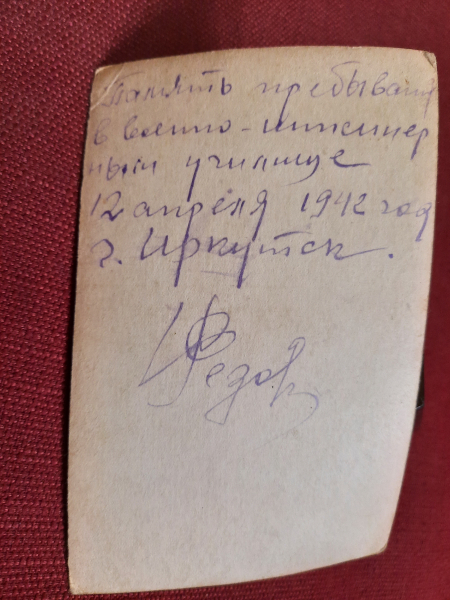 Память пребывания
в военно-инженер
ном училище
12 апреля 1942 год
г. Иркутск.